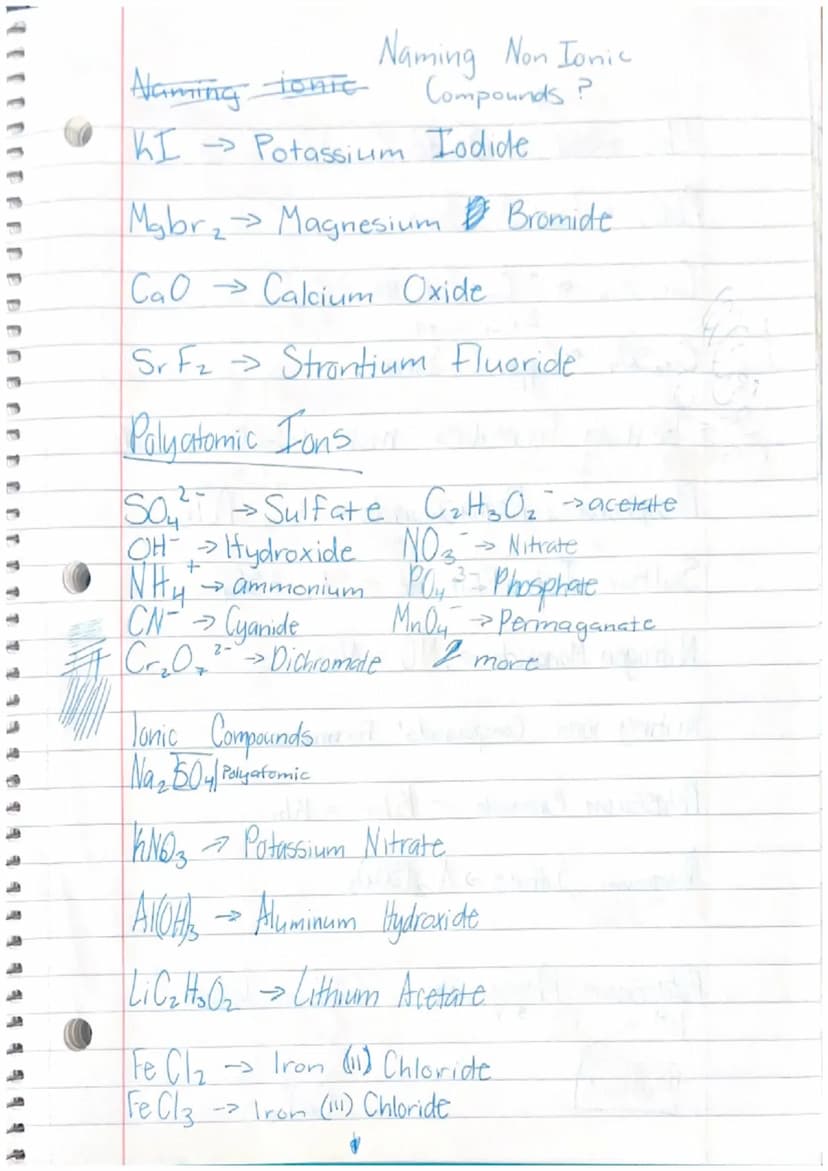 Naming Non Ionic
Naming ionic Compounds ?
KI → Potassium Iodide
Mgbr₂ → Magnesium Bromide
CaO → Calcium Oxide
SrF₂ → Strontium Fluoride
Polyatomic Ions
SO₄²⁻ → Sulfate C₂H₃O₂⁻ → acetate
OH⁻ → Hydroxide NO₃⁻ → Nitrate
NH₄⁺ → ammonium PO₄³⁻ Phosphate
CN⁻ → Cyanide MnO₄⁻ → Permaganate
Cr₂O₇²⁻ → Dichromate 2 more
Ionic Compounds
Na₂SO₄ Polyatomic
KNO₃ → Potassium Nitrate
Al(OH)₃ → Aluminum Hydroxide
LiC₂H₃O₂ → Lithium Acetate
FeCl₂ → Iron (II) Chloride
FeCl₃ → Iron (III) Chloride